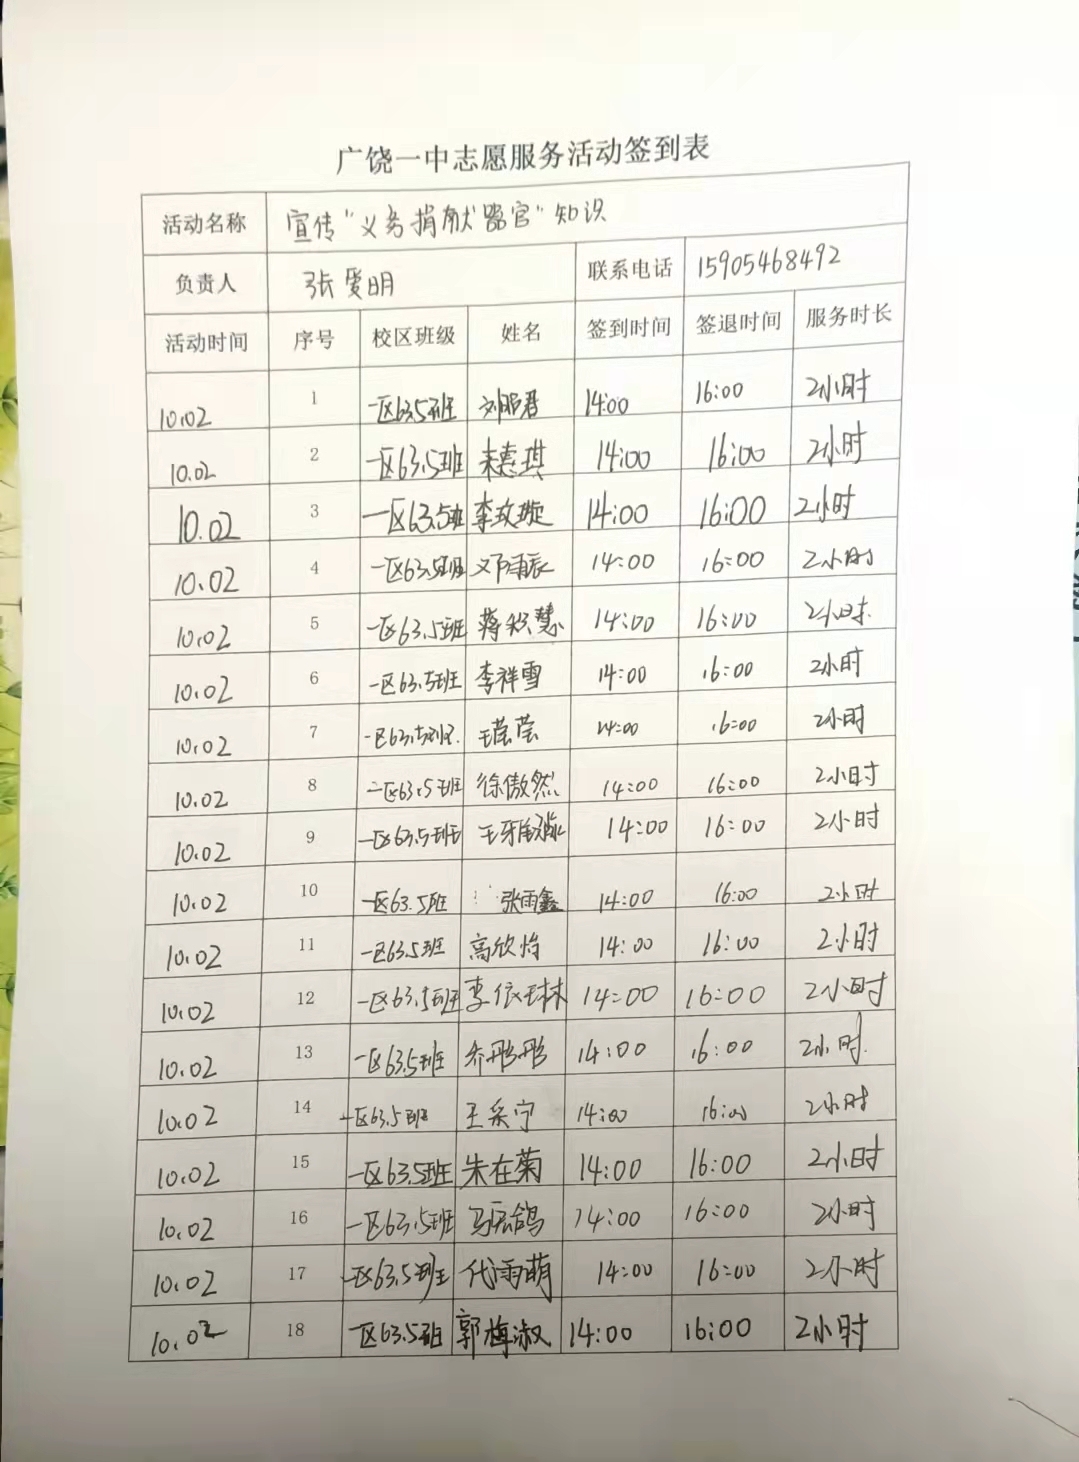 广饶一中志愿服务活动签到表
活动名称 宣传“义务捐献器官”知识
负责人 张爱明 联系电话 15905468492
活动时间 序号 校区班级 姓名 签到时间 签退时间 服务时长
10.02 1 一区63.5班 刘昭君 14:00 16:00 2小时
10.02 2 一区63.5班 14:00 16:00 2小时
10.02 3 一区63.5班 李玟璇 14:00 16:00 2小时
10.02 4 一区63.5班 邓雨辰 14:00 16:00 2小时
10.02 5 一区63.5班 14:00 16:00 2小时
10.02 6 一区63.5班 李祥雪 14:00 16:00 2小时
10.02 7 一区63.5班 王莹莹 14:00 16:00 2小时
10.02 8 一区63.5班 徐傲然 14:00 16:00 2小时
10.02 9 一区63.5班 14:00 16:00 2小时
10.02 10 一区63.5班 张雨鑫 14:00 16:00 2小时
10.02 11 一区63.5班 高欣怡 14:00 16:00 2小时
10.02 12 一区63.5班 李依琳 14:00 16:00 2小时
10.02 13 一区63.5班 乔彤彤 14:00 16:00 2小时
10.02 14 一区63.5班 王采宁 14:00 16:00 2小时
10.02 15 一区63.5班 朱在菊 14:00 16:00 2小时
10.02 16 一区63.5班 14:00 16:00 2小时
10.02 17 一区63.5班 代雨萌 14:00 16:00 2小时
10.02 18 一区63.5班 郭梅淑 14:00 16:00 2小时